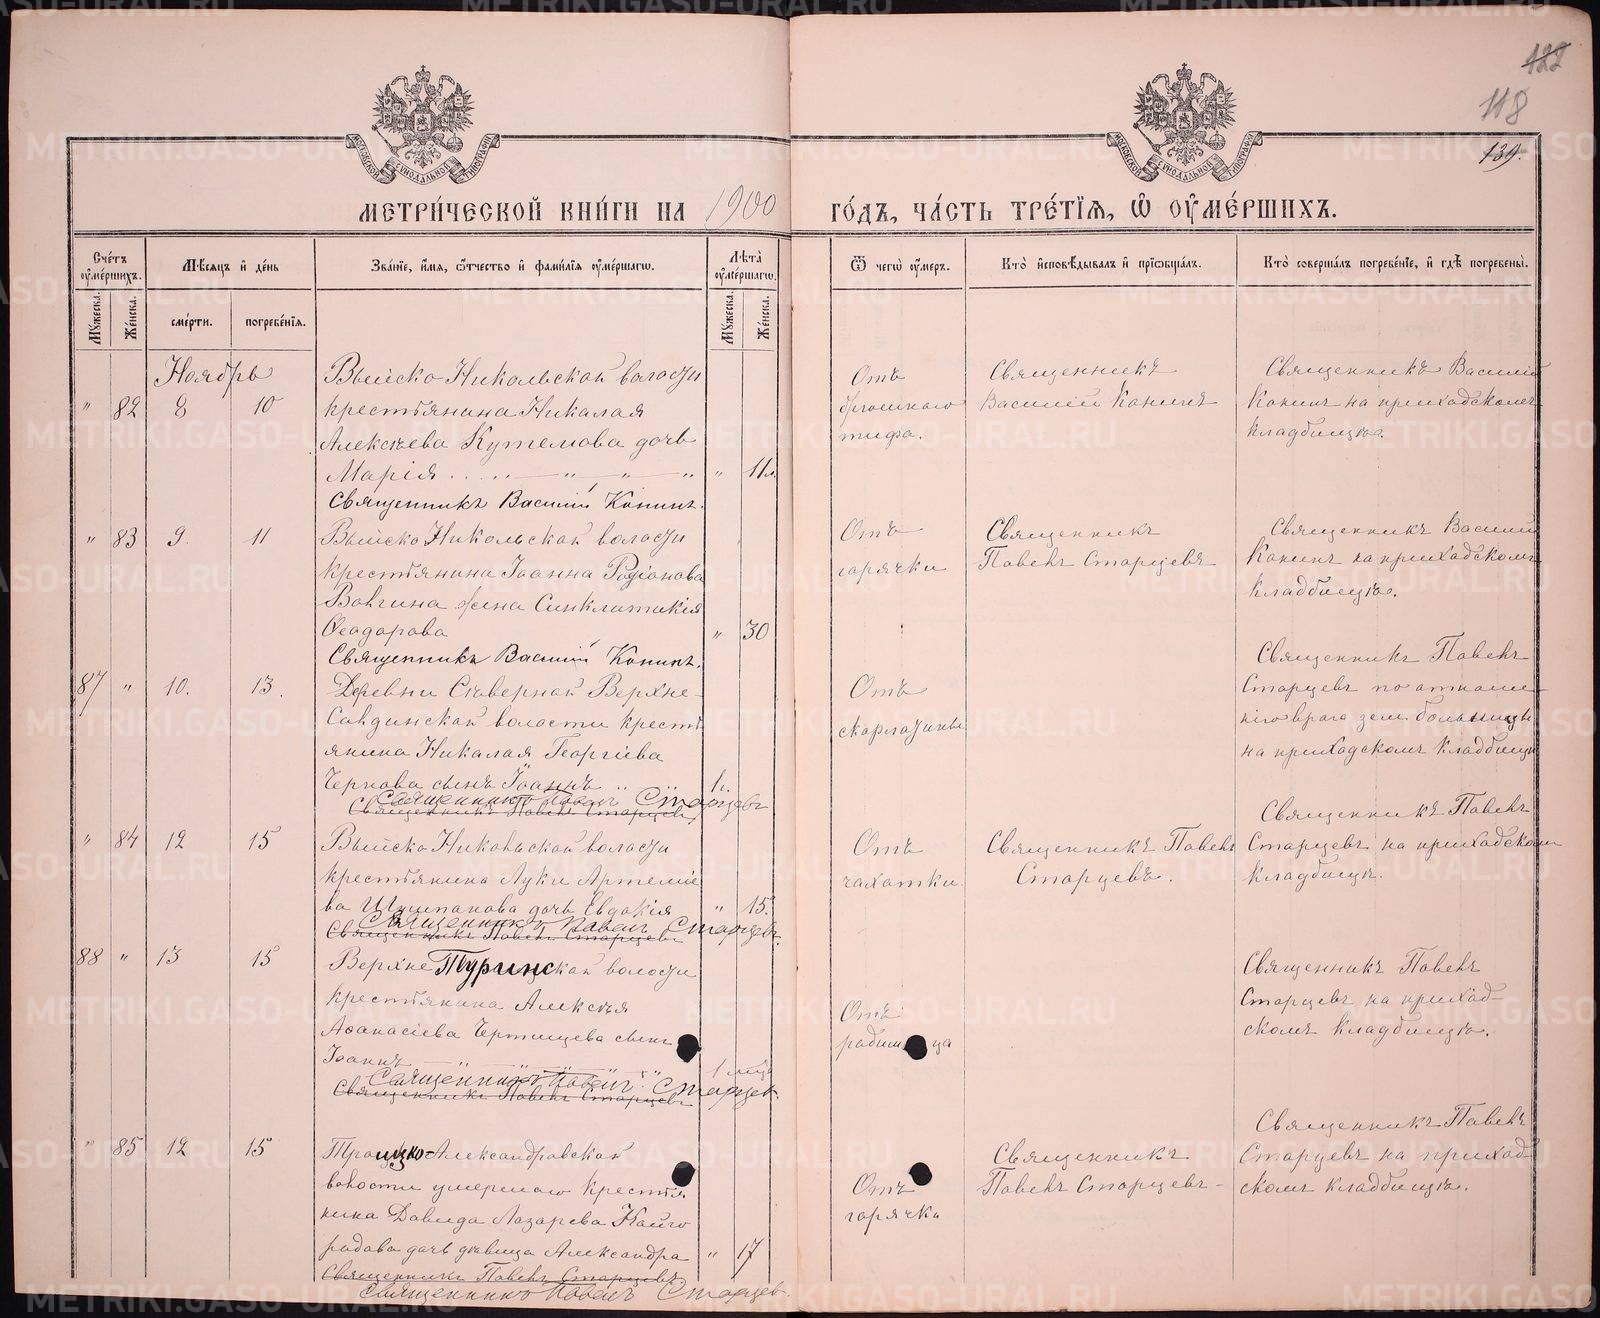 122
118
139.
МОСКОВСКОЙ СѴНОДАЛЬНОЙ ТИПОГРАФІИ
МОСКОВСКОЙ СѴНОДАЛЬНОЙ ТИПОГРАФІИ
МЕТРИ́ЧЕСКОЙ КНИ́ГИ НА 1900 ГО́ДЪ, ЧА́СТЬ ТРЕ́ТІѦ, Ѡ҆ ОУ҆МЕ́РШИХЪ.
Сче́тъ оу҆ме́ршихъ.
Мꙋ́жеска.
Же́нска.
Мѣ́сѧцъ и҆ де́нь
сме́рти.
погребе́нїѧ.
Зва́нїе, и҆́мѧ, ѻ҆́тчество и҆ фами́лїѧ оу҆ме́ршагѡ.
Лѣ́та оу҆ме́ршагѡ.
Мꙋ́жеска.
Же́нска.
Ѿ чегѡ̀ оу҆́меръ.
Кто̀ и҆сповѣ́дывалъ и҆ прїѡбща́лъ.
Кто̀ соверша́лъ погребе́нїе, и҆ гдѣ̀ погребены̀.
Ноябрь
" 82 8 10
Выйско-Никольской волости
крестьянина Николая
Алексѣева Кутемова дочь
Марія " 11 л.
Священникъ Василій Конинъ.
Отъ
брюшного
тифа.
Священникъ
Василій Конинъ
Священникъ Василій
Конинъ на приходскомъ
кладбищѣ.
" 83 9. 11
Выйско-Никольской волости
крестьянина Іоанна Родіонова
жена Синклитикія
Ѳеодорова " 30
Священникъ Василій Конинъ.
Отъ
горячки
Священникъ
Павелъ Старцевъ
Священникъ Василій
Конинъ на приходскомъ
кладбищѣ.
87 " 10. 13.
Деревни Сѣверной Верхне-
Салдинской волости кресть
янина Николая Георгіева
Чернова сынъ Іоаннъ 1 г.
Священникъ Павелъ Старцевъ
Священникъ Павелъ Старцевъ
Отъ
скарлатины
Священникъ Павелъ
Старцевъ по отноше-
нію врача зем. больницы
на приходскомъ кладбищѣ
" 84 12 15
Выйско-Никольской волости
крестьянина Луки Артеміе
ва дочь Евдокія " 15.
Священникъ Павелъ Старцевъ.
Священникъ Павелъ Старцевъ
Отъ
чахотки
Священникъ Павелъ
Старцевъ.
Священникъ Павелъ
Старцевъ на приходском
кладбищѣ.
88 " 13 15
Верхне Туринской волости
крестьянина Алексѣя
Аѳанасіева Чертищева сынъ
Іоаннъ 1 мѣс
Священникъ Павелъ Старцевъ.
Священникъ Павелъ Старцевъ
Отъ
родимца
Священникъ Павелъ
Старцевъ на приход-
скомъ кладбищѣ.
" 85 12 15
Троицко-Александровской
волости умершаго крестья
нина Давида Лазарева Кайго
родова дочь дѣвица Александра " 17
Священникъ Павелъ Старцевъ
Священникъ Павелъ Старцев.
Отъ
горячки
Священникъ
Павелъ Старцевъ-
Священникъ Павелъ
Старцевъ на приход-
скомъ кладбищѣ.
METRIKI.GASO-URAL.RU